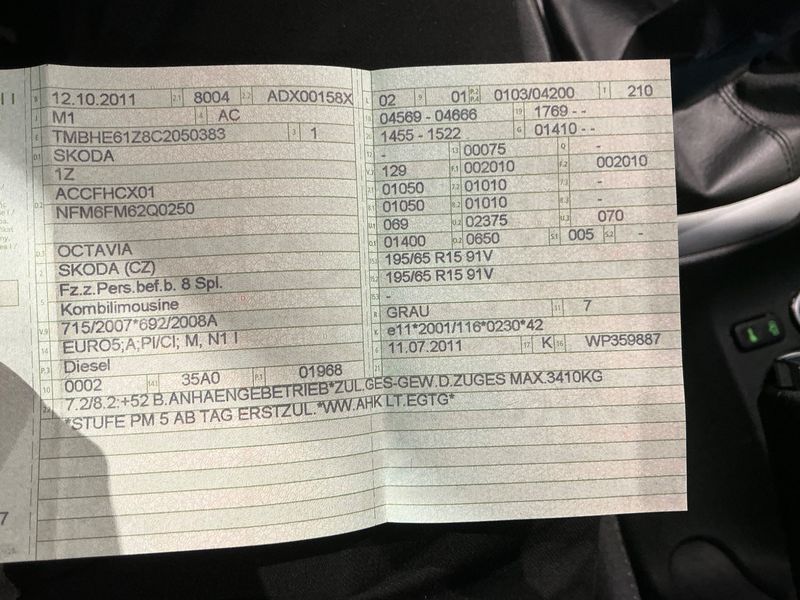 B 12.10.2011 2.1 8004 2.2 ADX00158X
J M1 4 AC
E TMBHE61Z8C2050383 3 1
D.1 SKODA
1Z
D.2 ACCFHCX01
NFM6FM62Q0250
D.3 OCTAVIA
2 SKODA (CZ)
5 Fz.z.Pers.bef.b. 8 Spl.
Kombilimousine
V.9 715/2007*692/2008A
14 EURO5;A;PI/CI; M, N1 I
P.3 Diesel
10 0002 14.1 35A0 P.1 01968
22 7.2/8.2:+52 B.ANHAENGEBETRIEB*ZUL.GES-GEW.D.ZUGES MAX.3410KG
*STUFE PM 5 AB TAG ERSTZUL.*WW.AHK LT.EGTG*
L 02 9 01 P.2 P.4 0103/04200 T 210
18 04569 - 04666 19 1769 - -
20 1455 - 1522 G 01410 - -
12 - 13 00075 Q -
V.7 129 F.1 002010 F.2 002010
7.1 01050 7.2 01010 7.3 -
8.1 01050 8.2 01010 8.3 -
U.1 069 U.2 02375 U.3 070
O.1 01400 O.2 0650 S.1 005 S.2 -
15.1 195/65 R15 91V
15.2 195/65 R15 91V
15.3 -
R GRAU 11 7
K e11*2001/116*0230*42
6 11.07.2011 17 K 16 WP359887
21
7